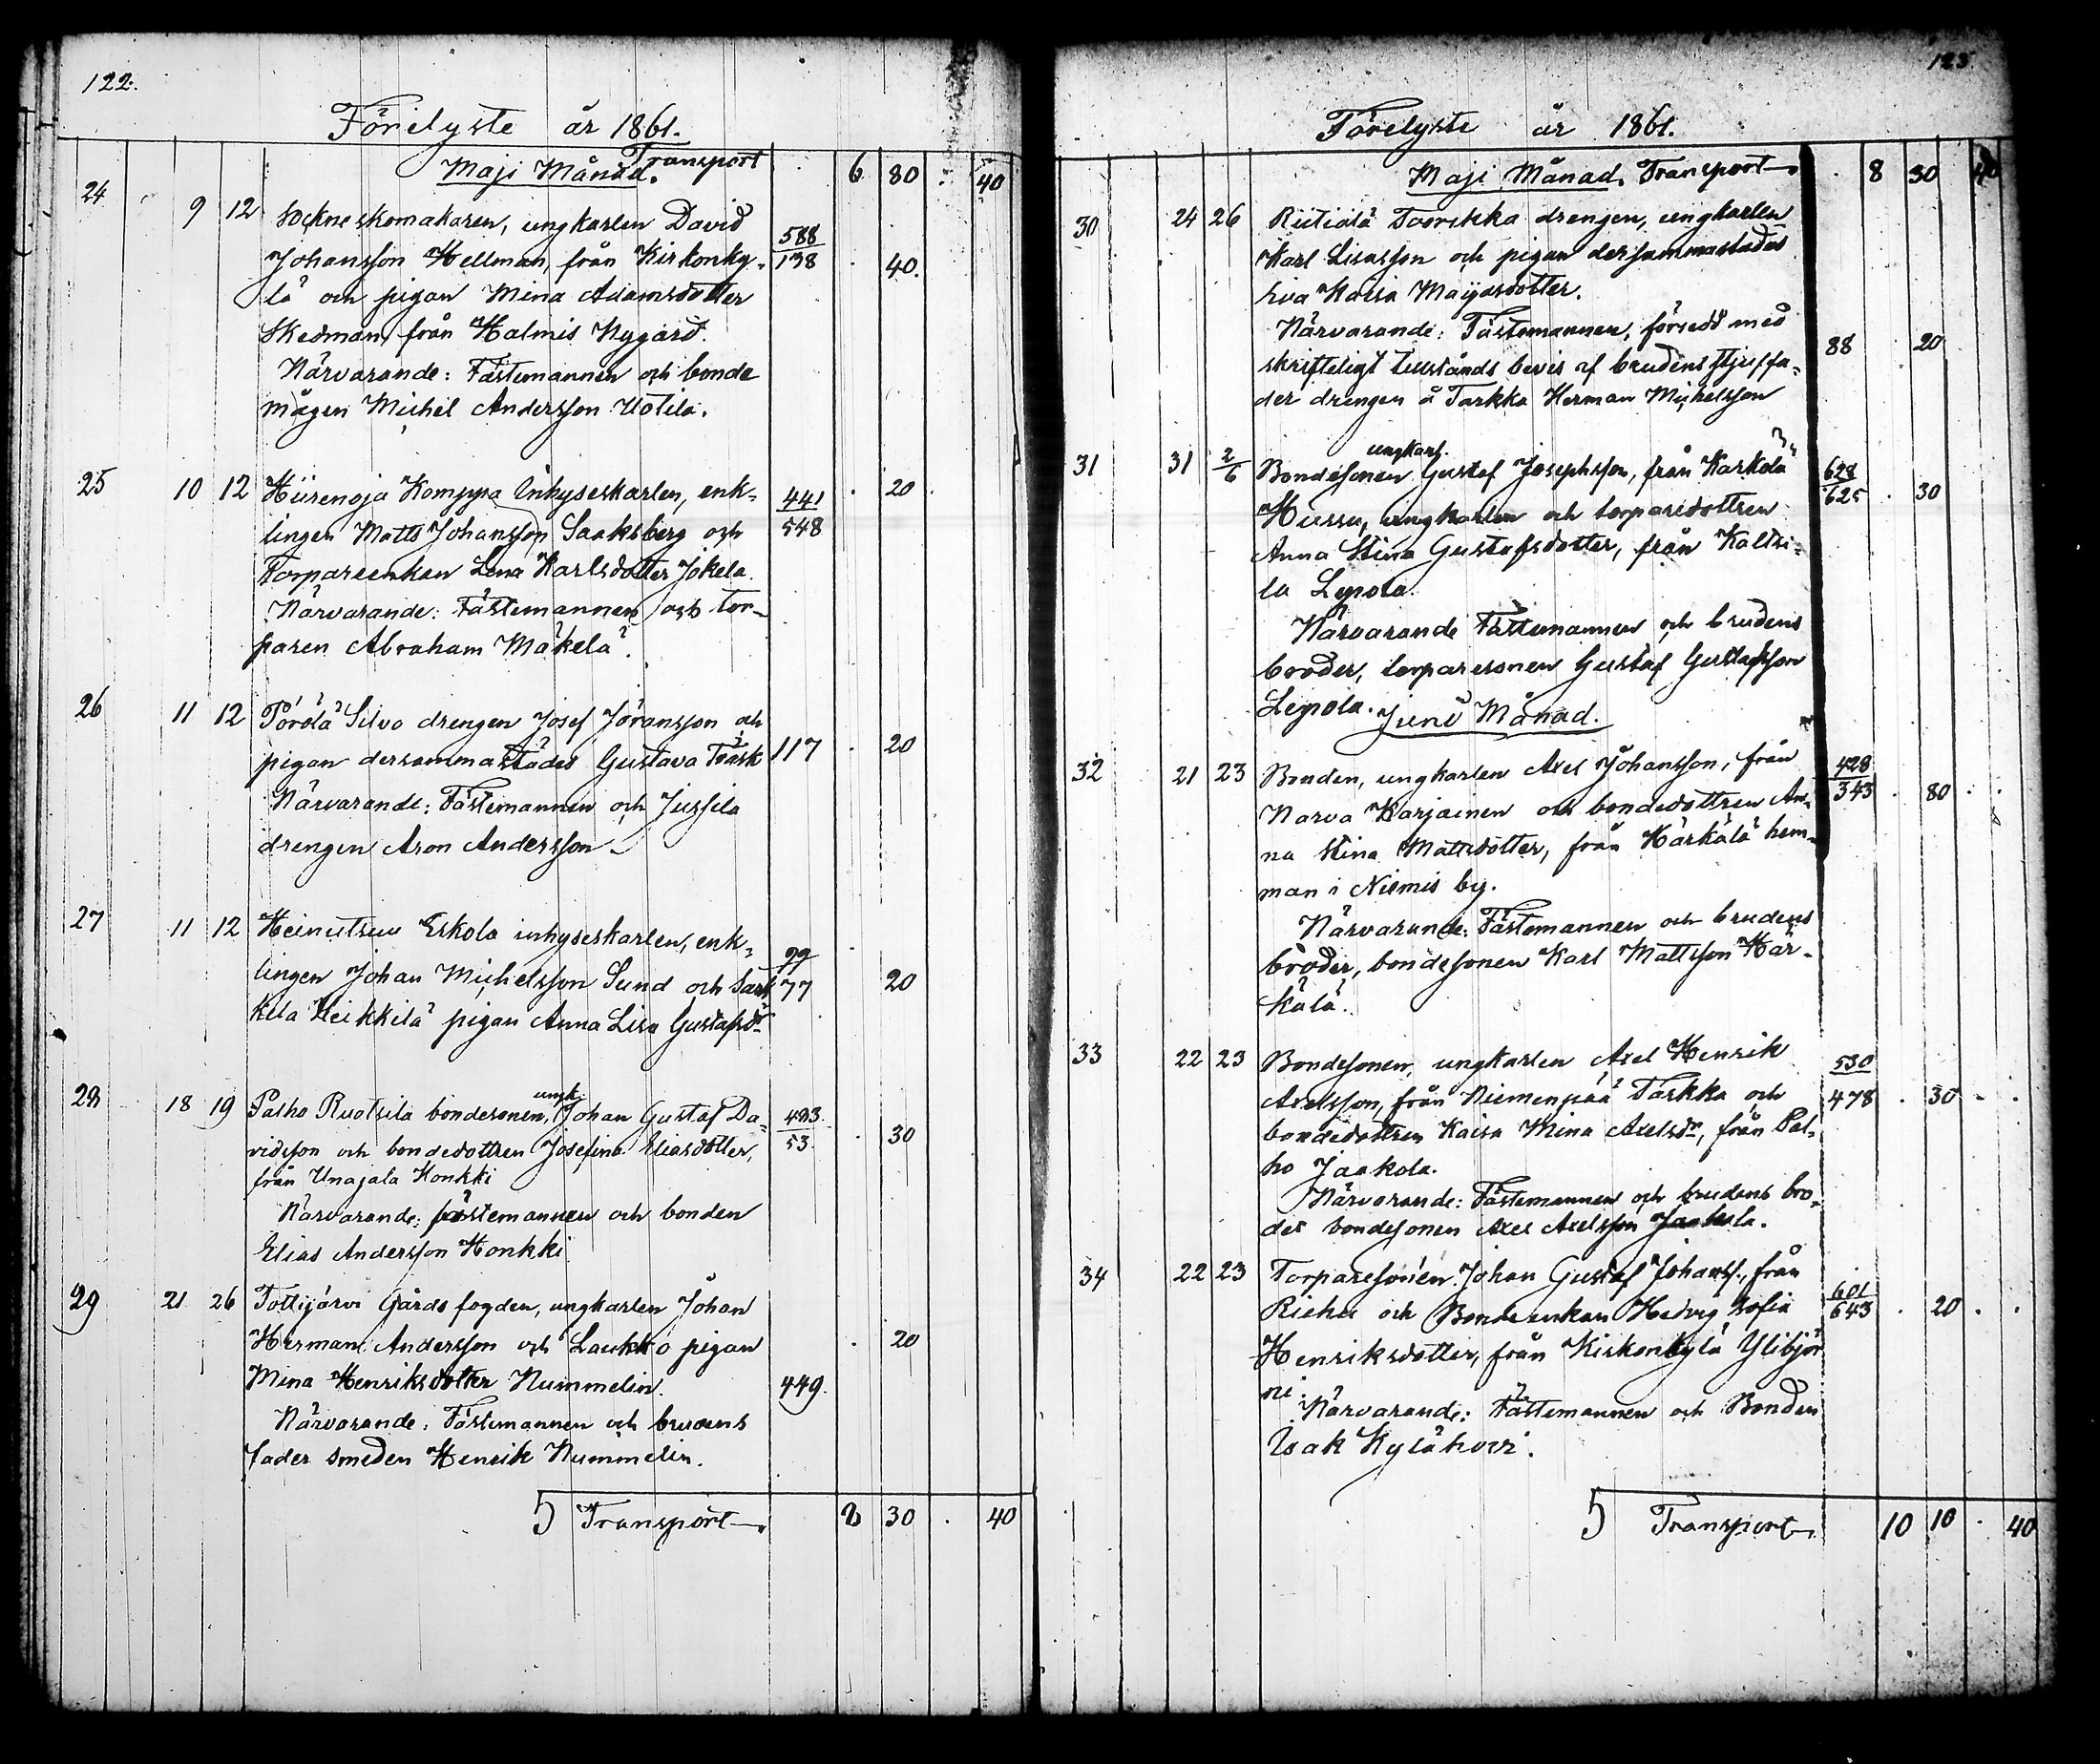 122.
Förelyste år 1861.
Maji Månad. Transport 6 80 . 40
24 9 12 Sockneskomakaren, ungkarlen David 588
Johansson Hellman, från Kirkonky- 138 . 40.
lä och pigan Mina Adamsdotter
Skedman, från Halmis Nygård.
Närvarande: Fästemannen och bonde
mågen Michel Andersson Uotila.
25 10 12 Hiirenoja Komppa Inhyseskarlen, enk- 441 . 20
lingen Matts Johansson Saaksberg och 548
Torpareenkan Lena Karlsdotter Jokela.
Närvarande: Fästemannen och tor-
paren Abraham Mäkelä.
26 11 12 Pörölä Silvo drengen Josef Jöransson och
pigan dersammastädes Gustava Träsk 117 . 20
Närvarande: Fästemannen och Jussila
drengen Aron Andersson
27 11 12 Heinutsuu Eskola inhyseskarlen, enk-
lingen Johan Michelsson Sund och Särk 77 20
kilä Heikkilä pigan Anna Lisa Gustafsdr
28 18 19 Palho Ruotsila bondesonen, ungk. Johan Gustaf Da- 493
vidsson och bondedottren Josefina Eliasdotter, 53. . 30
från Unajala Honkki
Närvarande: fästemannen och bonden
Elias Andersson Honkki
29 21 26 Tottijärvi Gårds fogden, ungkarlen Johan
Herman Andersson och Laukko pigan . 20
Mina Henriksdotter Nummelin. 449.
Närvarande: Fästemannen och brudens
fader smeden Henrik Nummelin.
5 Transport 8 30 . 40
123
Förelyste år 1861.
Maji Månad. Transport . 8 30 40
30 24 26 Riitiälä Tvorikka drengen, ungkarlen
Karl Lisasson och pigan dersammastädes
Eva Kaisa Maijasdotter.
Närvarande: Fästemannen, försedd med
skrifteligt tillstånds bevis af brudens stjuffa- 88 20
der drengen å Tarkka Herman Michelsson
31 31 2/6 Bondesonen ungkarl. Gustaf Josephsson, från Karkola 628
Hussu, ungkarlen och torparedottren 625 . 30
Anna Stina Gustafsdotter, från Kaltsi-
la Lepola.
Närvarande Fästemannen och brudens
broder, torparesonen Gustaf Gustafsson
Lepola.
Juni Månad.
32 21 23 Bonden, ungkarlen Axel Johansson, från 428
Narva Karjainen och bondedottren An- 343 . 80
na Stina Mattsdotter, från Härkälä hem-
man i Niemis by.
Närvarande: Fästemannen och brudens
broder, bondesonen Karl Mattsson Här-
kälä.
33 22 23 Bondesonen, ungkarlen Axel Henrik 530
Axelsson, från Niemenpää Tarkka och 478 . 30
bondedottren Kaisa Mina Axelsdr, från Pal-
ho Jaakola.
Närvarande: Fästemannen och brudens bro-
der bondesonen Axel Axelsson Jaakola.
34 22 23 Torparesonen Johan Gustaf Johanss., från 601
Riehu och Bondeenkan Hedvig Sofia 643 . 20
Henriksdotter, från Kirkonkylä Ylibjör
ni.
Närvarande: Fästemannen och Bonden
Isak Kylähovi.
5 Transport 10 10 . 40